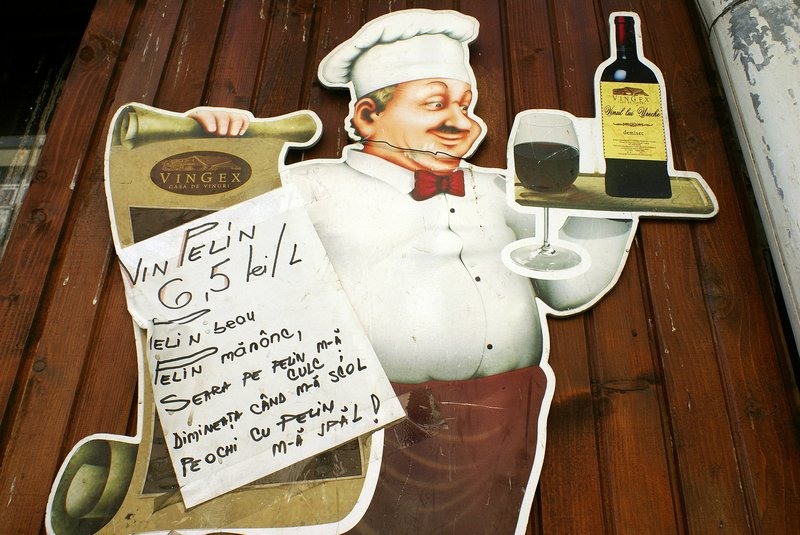 VINGEX
CASA DE VINURI
VIN PELIN
6,5 lei/L
PELIN beau
PELIN mănânc,
SEARA PE PELIN M-Ă
CULC ;
DIMINEAȚA CÂND M-Ă SCOL
PE OCHI CU PELIN
M-Ă SPĂL !
VINGEX
Vinul lui Ureche
demisec